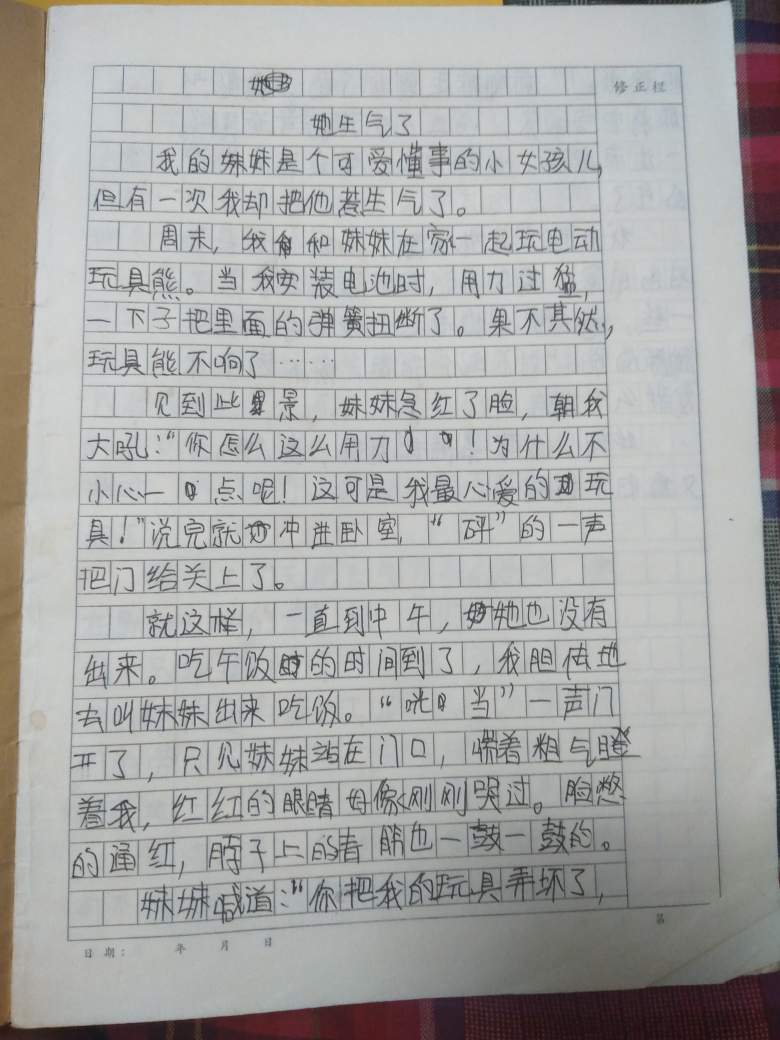 修正栏
她生气了
我的妹妹是个可爱懂事的小女孩儿,
但有一次我却把他惹生气了。
周末,我和妹妹在家一起玩电动
玩具熊。当我安装电池时,用力过猛,
一下子把里面的弹簧扭断了。果不其然,
玩具熊不响了……
见到此景,妹妹急红了脸,朝我
大吼:“你怎么这么用力!为什么不
小心一点呢!这可是我最心爱的玩
具!”说完就冲进卧室,“砰”的一声
把门给关上了。
就这样,一直到中午,她也没有
出来。吃午饭的时间到了,我胆怯地
去叫妹妹出来吃饭。“咣当”一声门
开了,只见妹妹站在门口,喘着粗气瞪
着我,红红的眼睛好像刚刚哭过。脸憋
的通红,脖子上的青筋也一鼓一鼓的。
妹妹喊道:“你把我的玩具弄坏了,
第
日期: 年 月 日